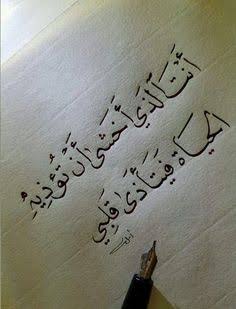 أَنْتَ الَّذِي أَخْشَىٰ أَنْ تُؤْذِيهِ
الحَيَاةُ فَيَتَأَذَىٰ قَلْبِي